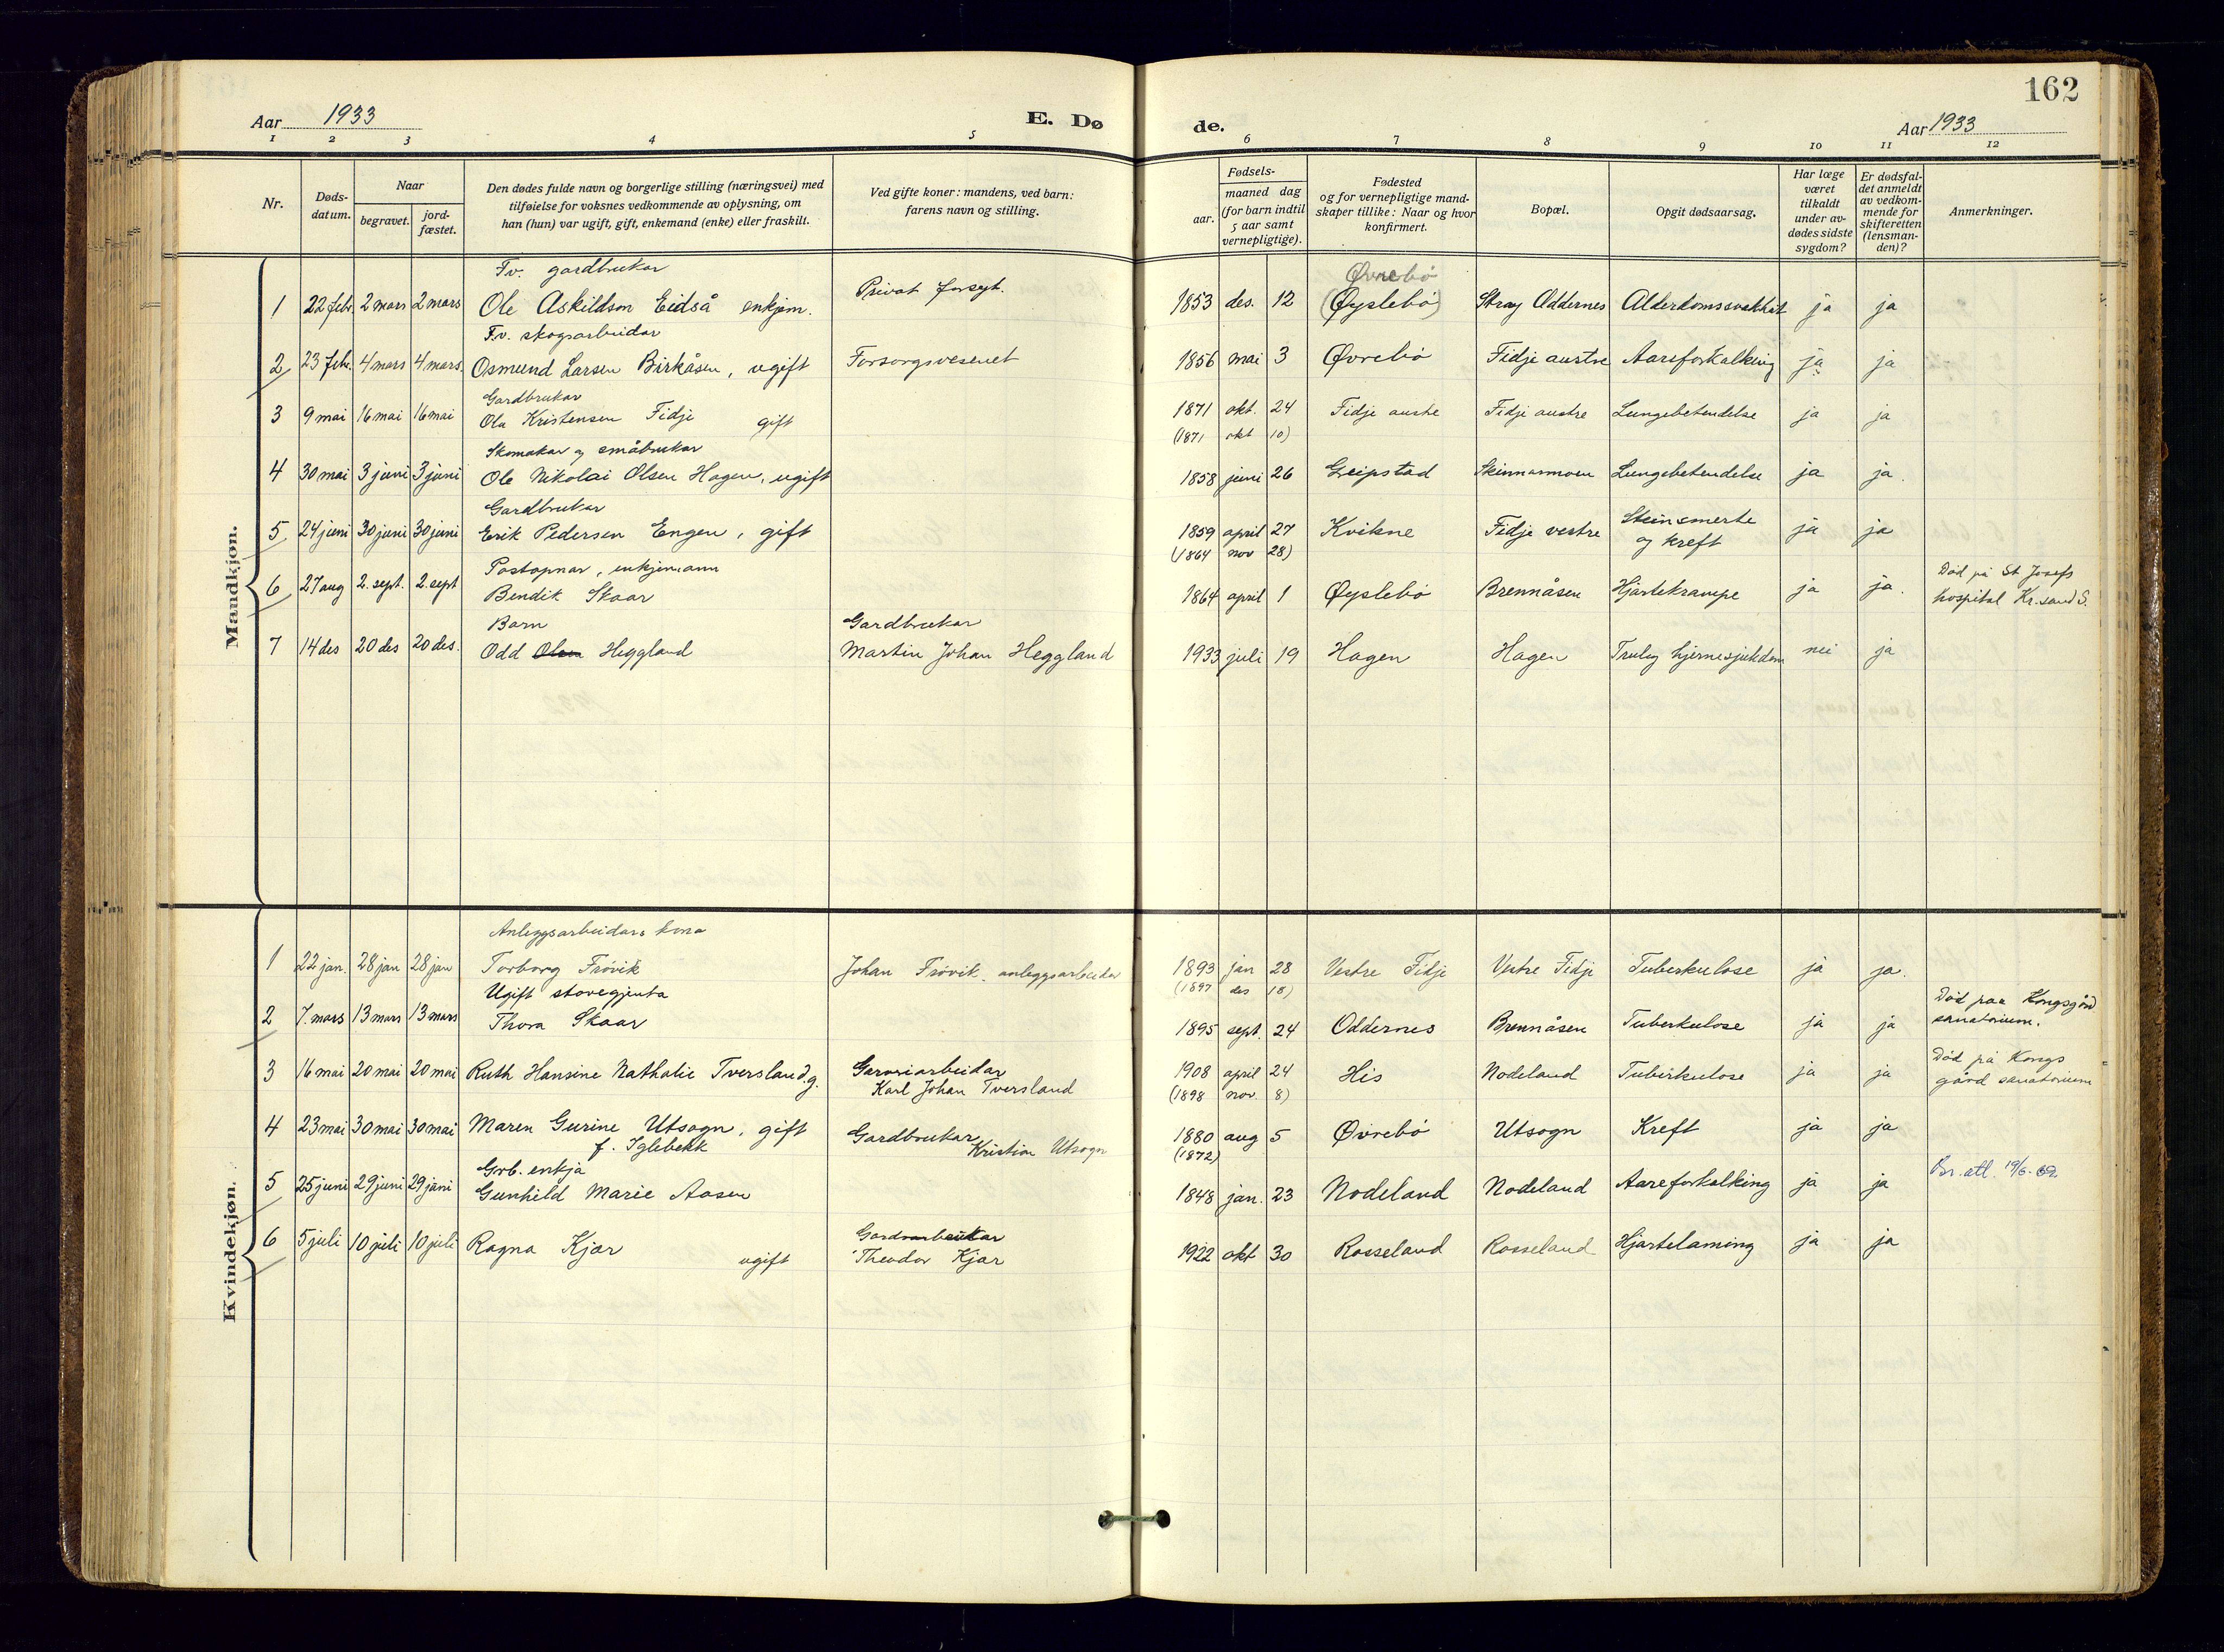 162
Aar 1933
E. Dø
de.
Aar 1933
1 2 3 4 5 6 7 8 9 10 11 12
Nr.
Døds-
datum.
Naar
begravet.
jord-
fæstet.
Den dødes fulde navn og borgerlige stilling (næringsvei) med
tilføielse for voksnes vedkommende av oplysning, om
han (hun) var ugift, gift, enkemand (enke) eller fraskilt.
Ved gifte koner: mandens, ved barn:
farens navn og stilling.
Fødsels-
aar.
maaned dag
(for barn indtil
5 aar samt
vernepligtige).
Fødested
og for vernepligtige mand-
skaper tillike: Naar og hvor
konfirmert.
Bopæl.
Opgit dødsaarsag.
Har læge
været
tilkaldt
under av-
dødes sidste
sygdom?
Er dødsfal-
det anmeldt
av vedkom-
mende for
skifteretten
(lensman-
den)?
Anmerkninger.
Mandkjøn.
Fv. gardbrukar Øvrebø
1 22 febr. 2 mars 2 mars Ole Askildson Eidså enkjem. Privat forsyt. 1853 des. 12 (Øyslebø) Stray Oddernes Alderdomssvakhet ja ja
Fv. skogsarbeidar
2 23 febr. 4 mars 4 mars. Osmund Larsen Birkåsen, ugift Forsorgsvesenet 1856 mai 3 Øvrebø Fidje austre Aareforkalking ja ja
Gardbrukar
3 9 mai 16 mai 16 mai Ola Kristensen Fidje gift 1871 okt. 24 Fidje austre Fidje austre Lungebetendelse ja ja
(1871 okt 10)
Skomakar og småbrukar
4 30 mai 3 juni 3 juni Ole Nikolai Olsen Hagen, ugift 1858 juni 26 Greipstad Skinnarmoen Lungebetendelse ja ja.
Gardbrukar
5 24 juni 30 juni 30 juni Erik Pedersen Engen, gift 1859 april 27 Kvikne Fidje vestre Steinsmerte og kreft ja ja
(1864 nov 28)
Postopnar, enkjemann
6 27 aug 2. sept. 2. sept Bendik Skaar 1864 april 1 Øyslebø Brennåsen Hjartekrampe ja ja. Død på St Josefs
hospital Kr.sand S.
Barn Gardbrukar
7 14 des 20 des 20 des. Odd Olsen Heggland Martin Johan Heggland 1933 juli 19 Hagen Hagen Truleg hjernesjukdom nei ja
Kvindekjøn.
Anleggsarbeidars kona
1 22 jan. 28 jan 28 jan Torborg Frøvik Johan Frøvik. anleggsarbeidar 1893 jan 28 Vestre Fidje Vestre Fidje Tuberkulose ja ja.
(1897 des 18)
Ugift stovegjenta
2 7. mars 13 mars 13 mars Thora Skaar 1895 sept. 24 Oddernes Brennåsen Tuberkulose ja ja Død paa Kongsgård
sanatorium.
3 16 mai 20 mai 20 mai Ruth Hansine Nathalie Tversland, g. Garveriarbeidar
Karl Johan Tversland 1908 april 24 His Nodeland Tuberkulose ja ja Død på Kongs
gård sanatorium
(1898 nov. 8)
4 23 mai 30 mai 30 mai Maren Gurine Utsogn, gift
f. Iglebekk Gardbrukar
Kristian Utsogn 1880 aug 5 Øvrebø Utsogn Kreft ja ja
(1872)
Grb. enkja
5 25 juni 29 juni 29 juni Gunhild Marie Aasen 1848 jan. 23 Nodeland Nodeland Aareforkalking ja ja Br. att. 19/6-69.
6 5 juli 10 juli 10 juli Ragna Kjær ugift Gardbrukar
Theodor Kjær 1922 okt 30 Rosseland Rosseland Hjartelaming ja ja